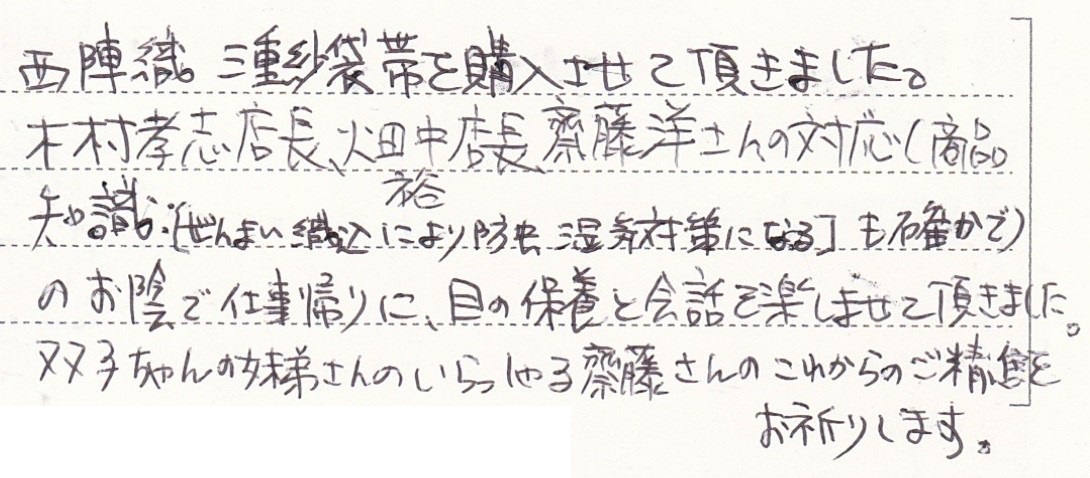 西陣織 三重紗袋帯を購入させて頂きました。
木村孝志店長、畑中店長、齋藤洋さんの対応(商品
裕
知識:「ぜんまい織込により防虫 湿気対策になる」も確かで)
のお陰で仕事帰りに、目の保養と会話を楽しませて頂きました。
双子ちゃんのお姉さんのいらっしゃる齋藤さんのこれからのご精進を
お祈りします。